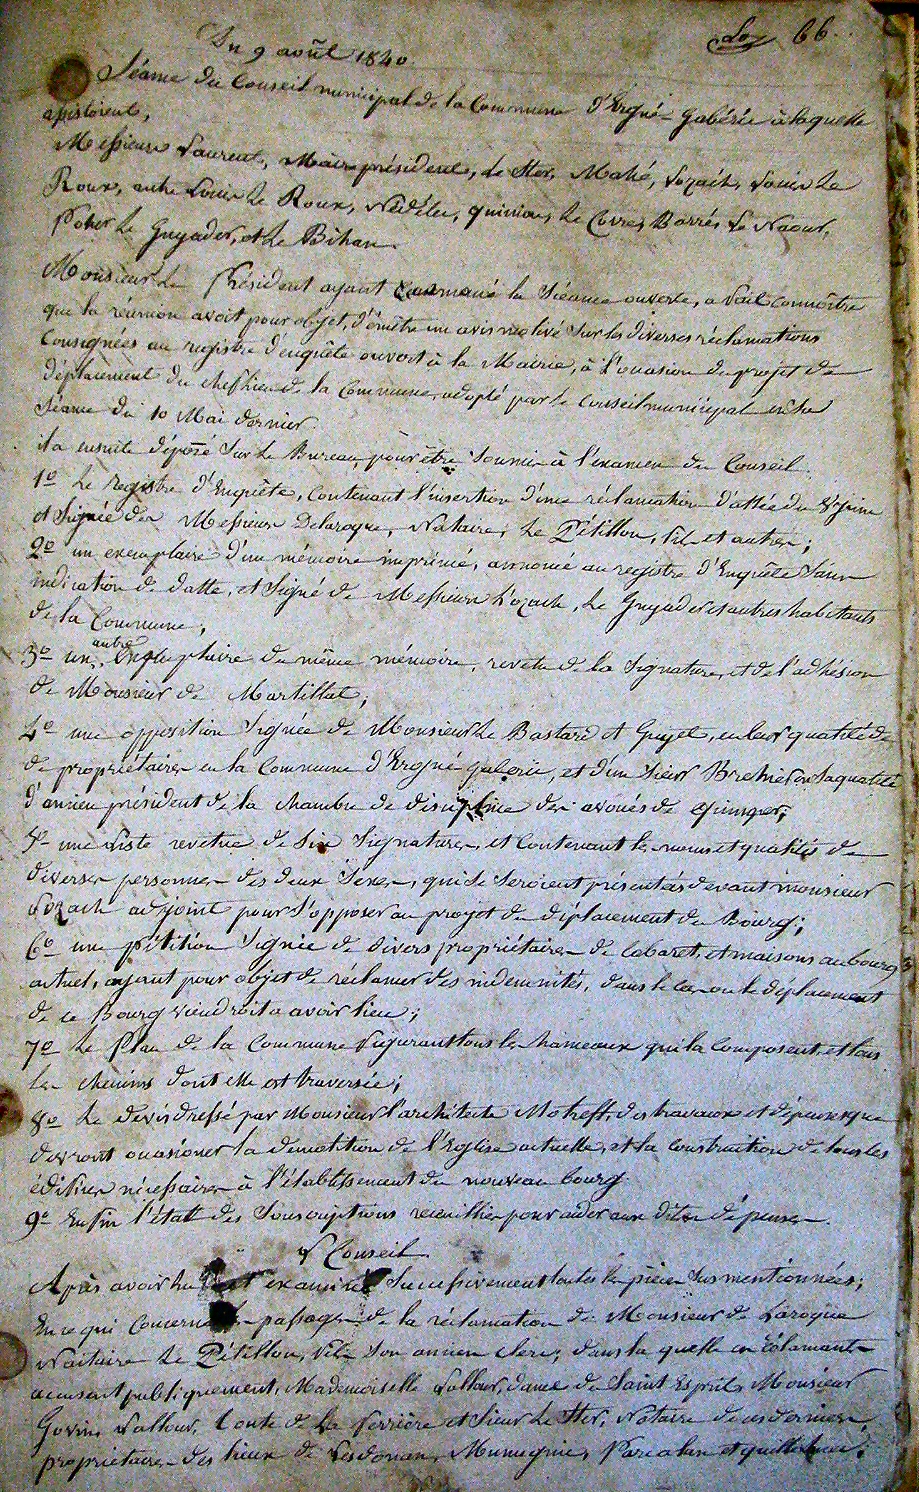 66.
Du 9 août 1840.
Séance du Conseil municipal de la Commune d'Ergué-Gabéric à laquelle
assistoient,
Messieurs Laurent, Maire président, Le Ster, Mahé, Lozach, Louis Le
Roux, autre Louis Le Roux, Nédélec, Quiniou, Le Corre, Barré, Le Naour,
Poher Le Guyader, et Le Bihan.
Monsieur Le Président ayant la Séance ouverte, a fait connoître
que la réunion avoit pour objet, d'émettre un avis motivé sur les diverses réclamations
Consignées au registre d'enquête ouvert à la Mairie, à l'occasion du projet de
déplacement du chef lieu de la Commune, adopté par le Conseil municipal en sa
Séance du 10 Mai dernier.
il a ensuite déposé sur le Bureau, pour être soumis à l'examen du Conseil.
1º Le registre d'Enquête, Contenant l'insertion d'une réclamation d'attée du 8 juin
et Signée des Messieurs Delaroque, Notaire, Le Pétillon, fils et autres;
2º un exemplaire d'un mémoire imprimé, annoncé au registre d'Enquête sans
indication de datte, et Signé de Messieurs Lozach, Le Guyader et autres habitants
de la Commune;
3º un autre Exemplaire du même mémoire, revêtu de la Signature, et de l'adhésion
de Monsieur de Martillat;
4º une opposition Signée de Monsieur Le Bastard et Guyet, en leur qualité de
de propriétaires en la Commune d'Ergué-gaberic, et d'un Sieur en sa qualité
d'ancien président de la chambre de discipline des avoués de quimper;
5º une Liste revetue de Six Signatures, et Contenant les noms et qualités de
diverses personnes des deux Sexes, qui se seroient présentées devant monsieur
Lozach adjoint pour s'opposer au projet du déplacement du Bourg;
6º une pétition Signée de divers propriétaires de Cabaret, et maisons au bourg
actuel, ayant pour objet de réclamer des indemnités, dans le cas ou le déplacement
de ce Bourg viendroit a avoir lieu;
7º Le Plan de la Commune figurant tous les hameaux qui la Composent, et tous
les chemins dont elle est traversée;
8º Le devis dressé par Monsieur l'architecte des travaux et dépenses que
devront ocasioner la démolition de l'Eglise actuelle, et la Construction de tous les
édifices nécessaires à l'établissement du nouveau bourg.
9º Enfin l'état des Souscriptions recueillies pour aider aux dites dépenses.
Le Conseil.
Après avoir lu et examiné Successivement toutes les pièces sus mentionnées;
En ce qui Concerne les passages de la réclamation de Monsieur de Laroque
Notaire Le Pétillon, fils son ancien clerc; dans la quelle ces réclamants
accusent publiquement, Mademoiselle Lallour, dame du Saint Esprit, Monsieur
Lallour, Conte de La Ferrière et Sieur Le Ster, Notaire de ces derniers
propriétaires des lieux de Lesdonan, Munuguic, et